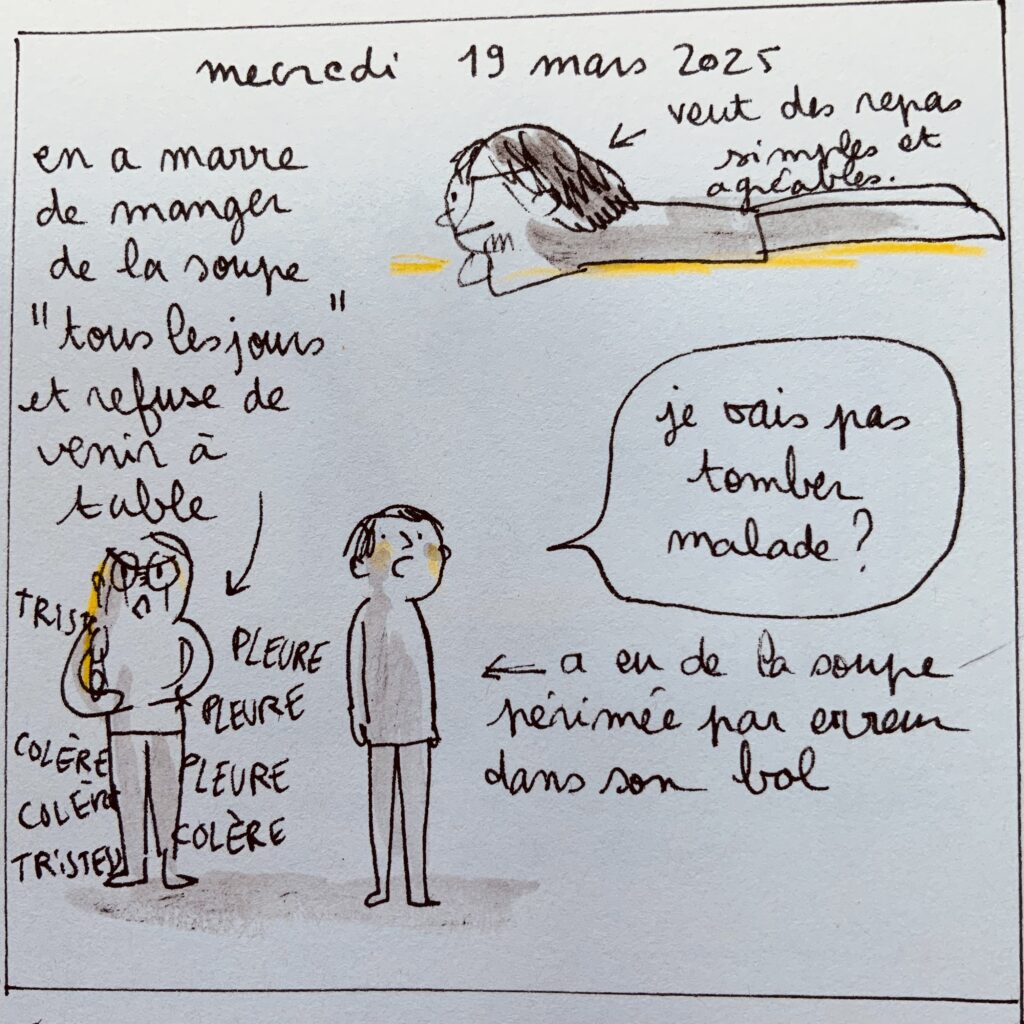 mecredi 19 mars 2025
veut des repas
simples et
agréables.
en a marre
de manger
de la soupe
"tous les jours"
et refuse de
venir à
table
je vais pas
tomber
malade ?
TRIST
PLEURE
PLEURE
COLÈRE
PLEURE
COLÈRE
COLÈRE
TRISTE
a eu de la soupe
périmée par erreur
dans son bol